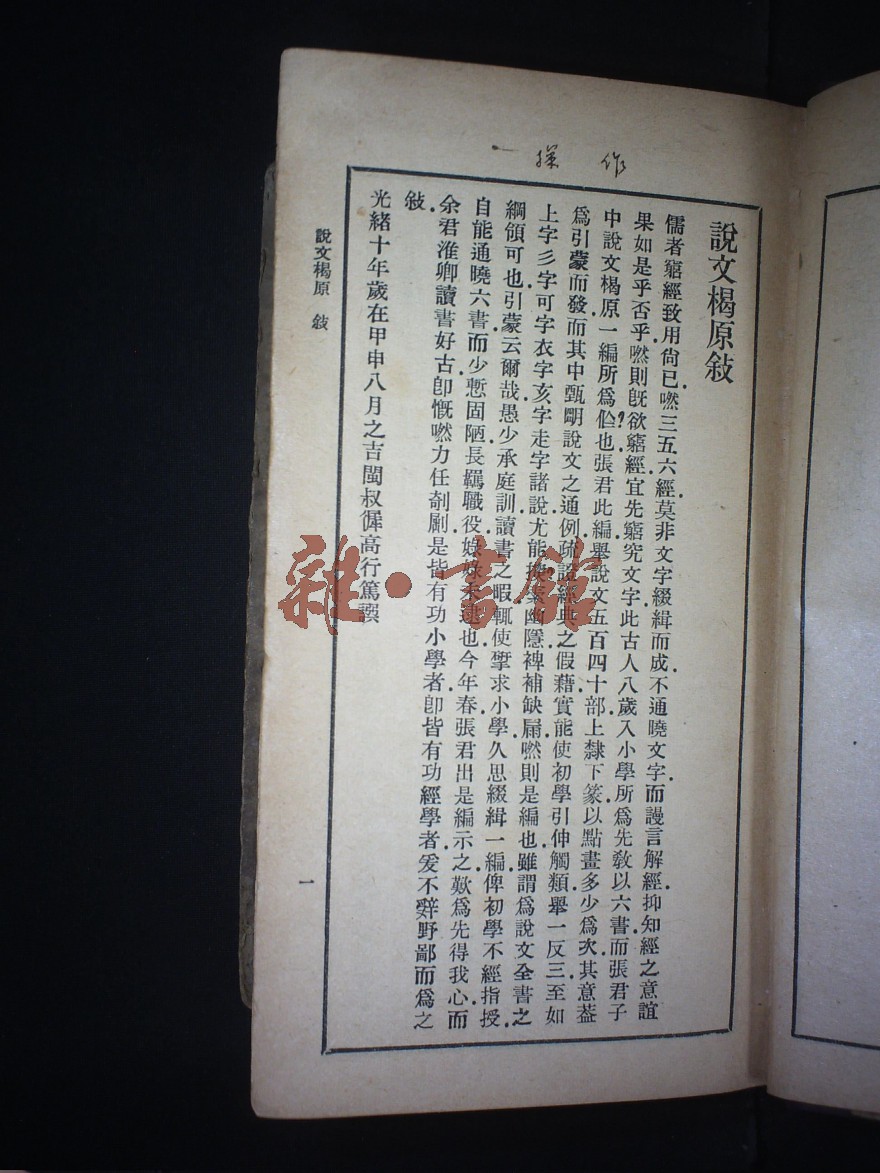 作 操 一
說文楬原敍
儒者窮經致用尙已嘫三五六經莫非文字綴緝而成不通曉文字而謾言解經抑知經之意誼
果如是乎否乎嘫則旣欲竆經宜先竆究文字此古人八歲入小學所爲先敎以六書而張君子
中說文楬原一編所爲作也張君此編舉說文五百四十部上隸下篆以點畫多少爲次其意葢
爲引蒙而發而其中甄朙說文之通例疏證經典之假藉實能使初學引伸觸類舉一反三至如
上字彡字可字衣字亥字走字諸說尤能搜索幽隱裨補缺扇嘫則是編也雖謂爲說文全書之
綱領可也引蒙云爾哉愚少承庭訓讀書之暇輒使揅求小學久思綴緝一編俾初學不經指授
自能通曉六書而少慙固陋長羈職役娽娽未逮也今年春張君出是編示之歎爲先得我心而
余君淮卿讀書好古卽慨嘫力任剞劂是皆有功小學者卽皆有功經學者爰不辤野鄙而爲之
敍
光緒十年歲在甲申八月之吉閩叔徲高行篤譔
說文楬原 敍
一
雜·書館